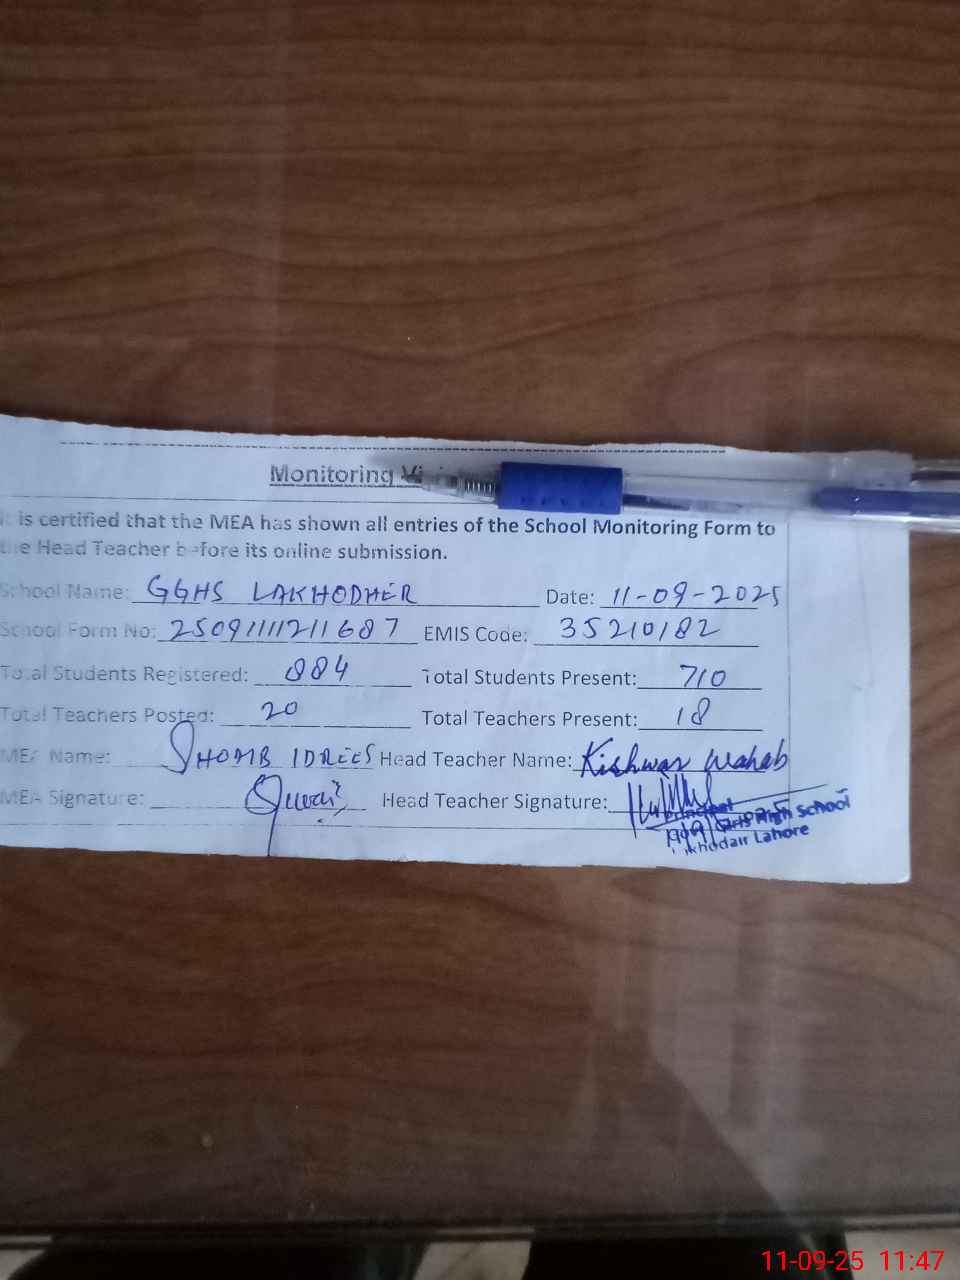 Monitoring
is certified that the MEA has shown all entries of the School Monitoring Form to
the Head Teacher before its online submission.
School Name: GGHS LAKHODHER Date: 11-09-2025
School Form No: 25091111211687 EMIS Code: 35210182
Total Students Registered: 884 Total Students Present: 710
Total Teachers Posted: 20 Total Teachers Present: 18
MEA Name: IDREES Head Teacher Name: Kishwar Wahab
MEA Signature: Head Teacher Signature:
Principal
Girls High School
Lahore
11-09-25 11:47